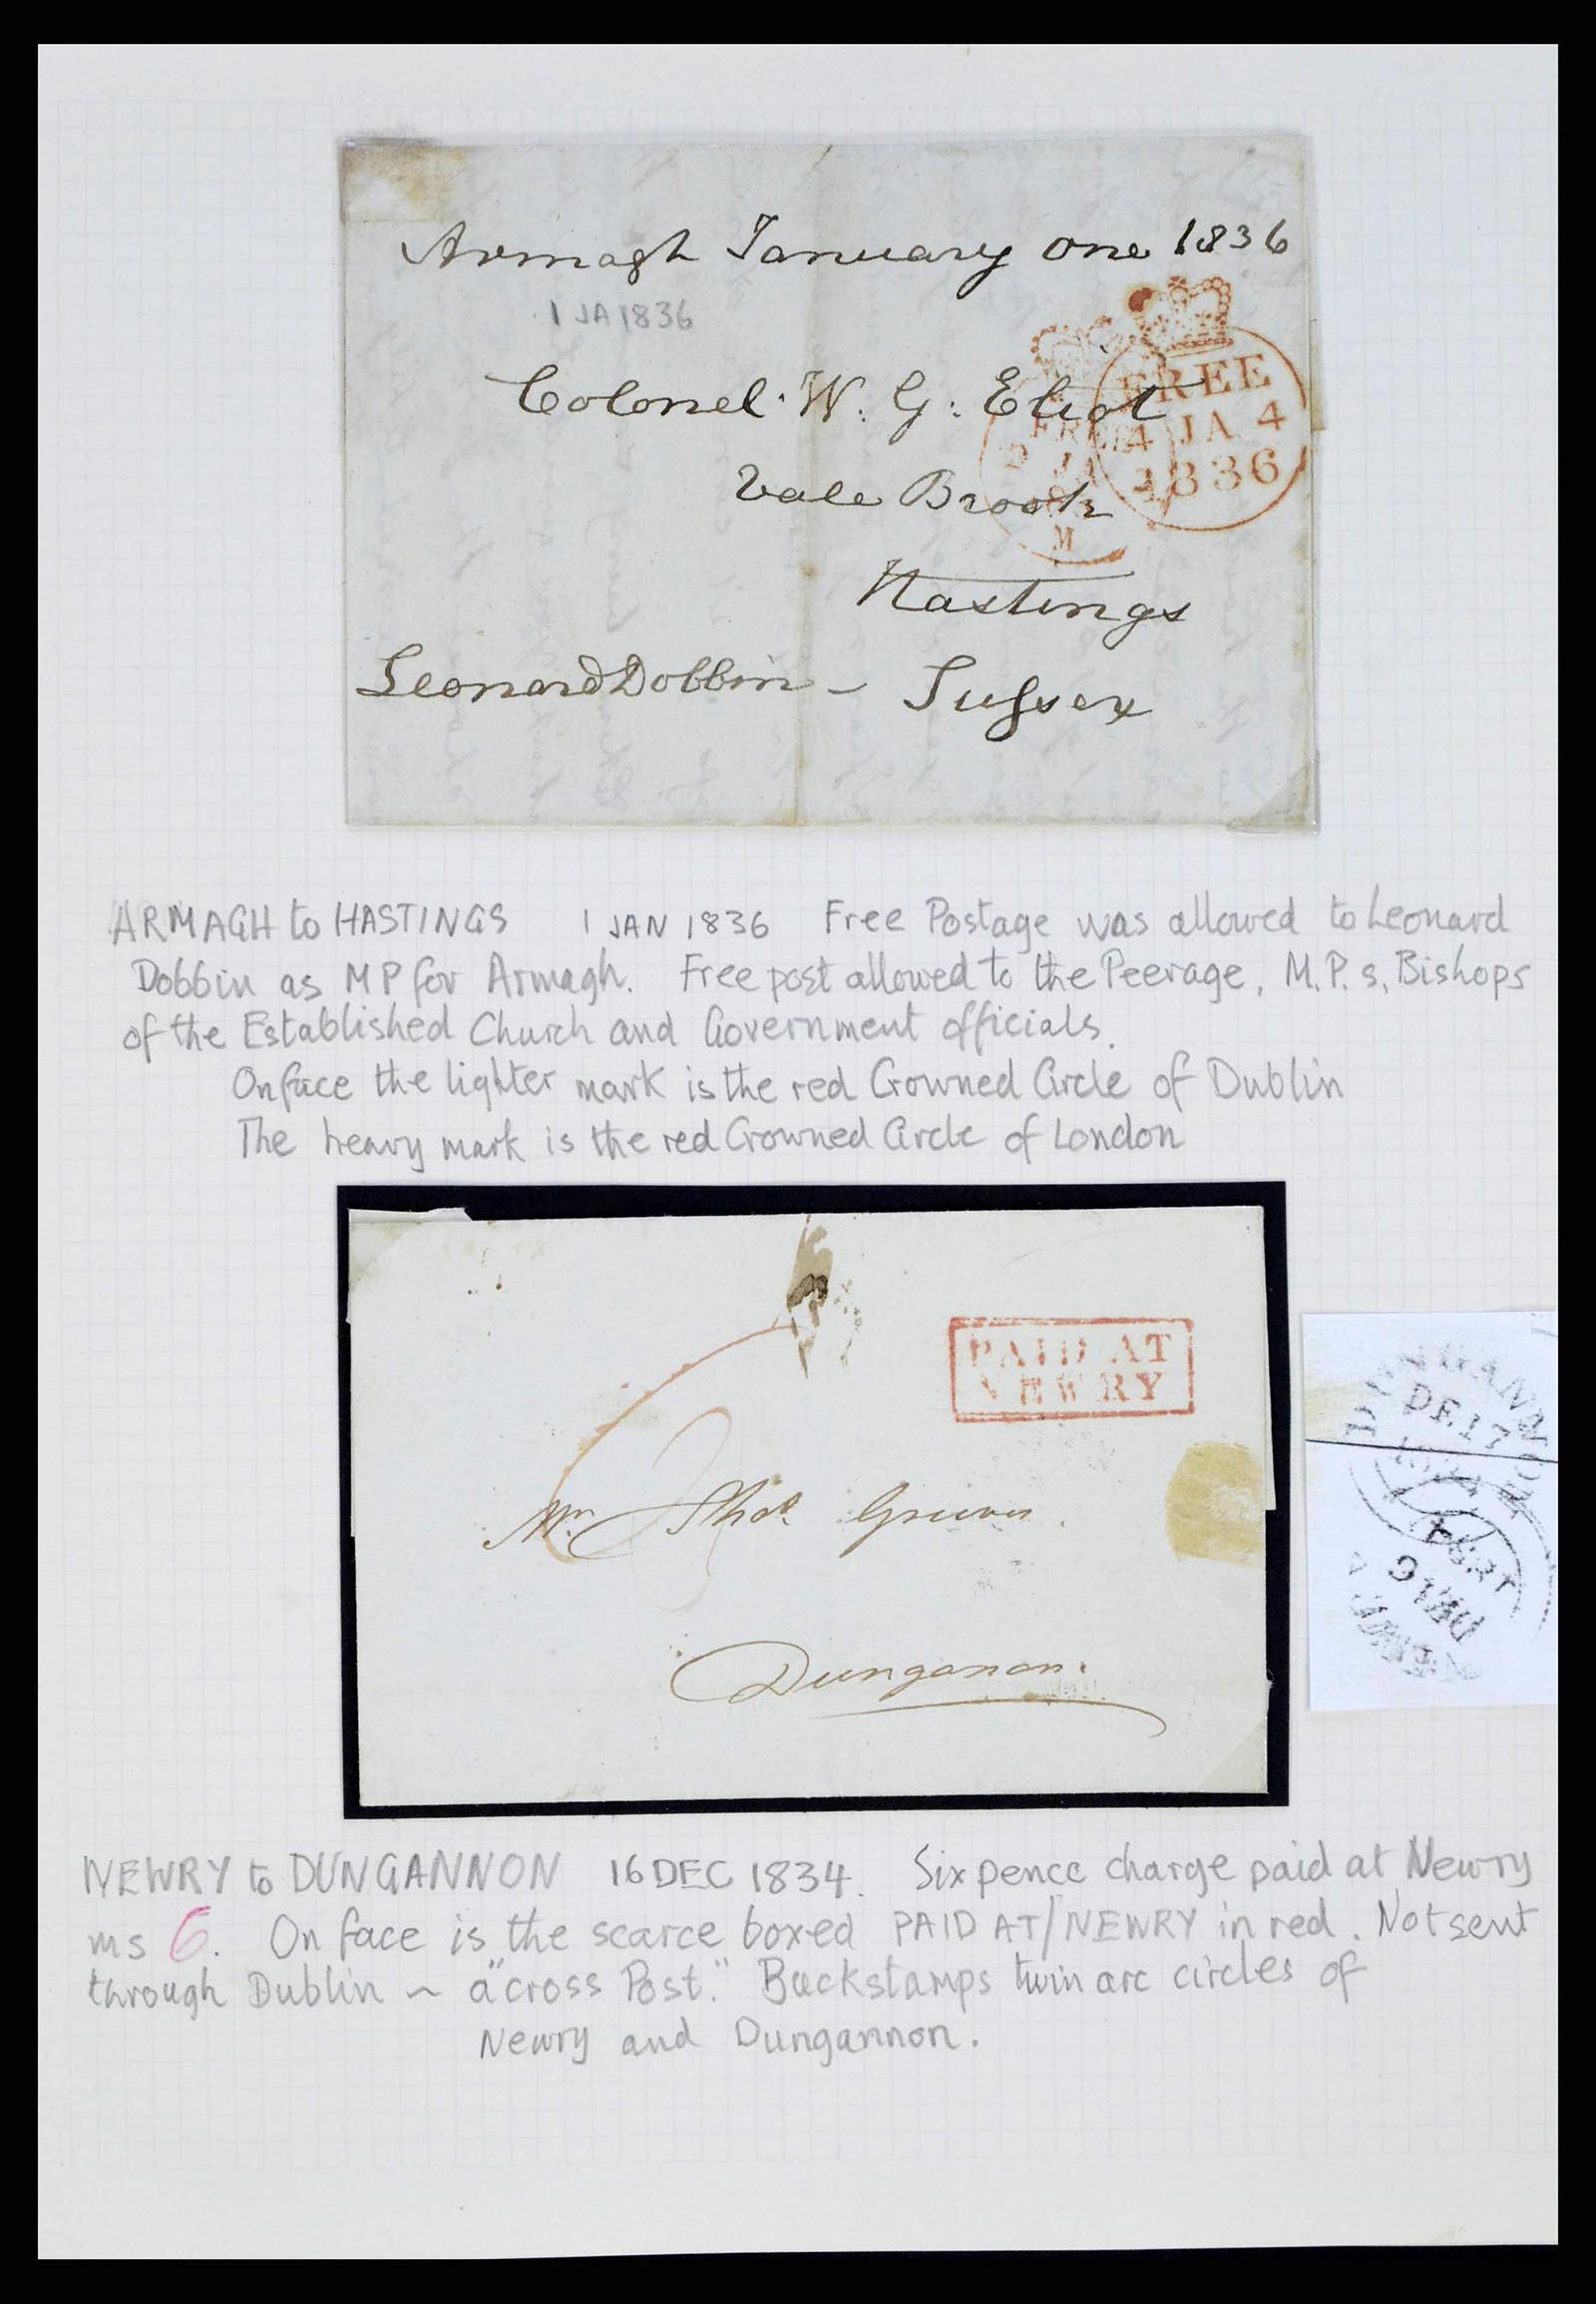 Armagh January one 1836
1 JA 1836
Colonel W. G: Eliot
FREE
4 JA 4
1836
FREE
2 JA
M
Vale Brook
Hastings
Leonard Dobbin - Sussex
ARMAGH to HASTINGS 1 JAN 1836 Free Postage was allowed to Leonard
Dobbin as MP for Armagh. Free post allowed to the Peerage, M.P.s, Bishops
of the Established Church and Government officials.
On face the lighter mark is the red Crowned Circle of Dublin
The heavy mark is the red Crowned Circle of London
PAID AT
NEWRY
Mr. Thos.
Dungannon.
DUNGANNON
DE 17
NEWRY to DUNGANNON 16 DEC 1834. Six pence charge paid at Newry
ms 6. On face is the scarce boxed PAID AT/NEWRY in red. Not sent
through Dublin ~ a "cross Post." Backstamps twin arc circles of
Newry and Dungannon.